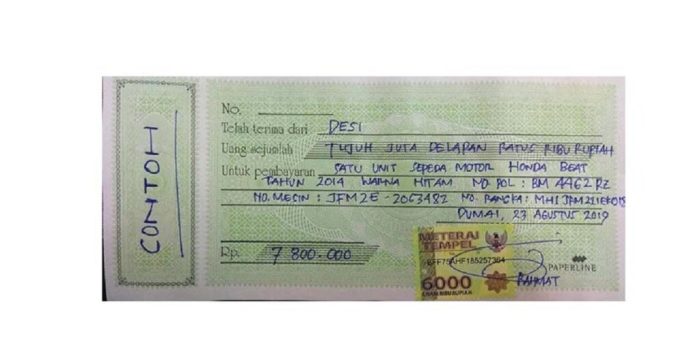 CONTOH
No.
Telah terima dari DESI
Uang sejumlah TUJUH JUTA DELAPAN RATUS RIBU RUPIAH
Untuk pembayaran SATU UNIT SEPEDA MOTOR HONDA BEAT
TAHUN 2014 WARNA HITAM NO. POL : BM 4462 RZ
NO. MESIN : JFM2E - 2063482 NO. RANGKA :
DUMAI, 23 AGUSTUS 2019
METERAI
TEMPEL
Rp. 7 800.000
6000
ENAM RIBU RUPIAH
PAPERLINE
RAHMAT